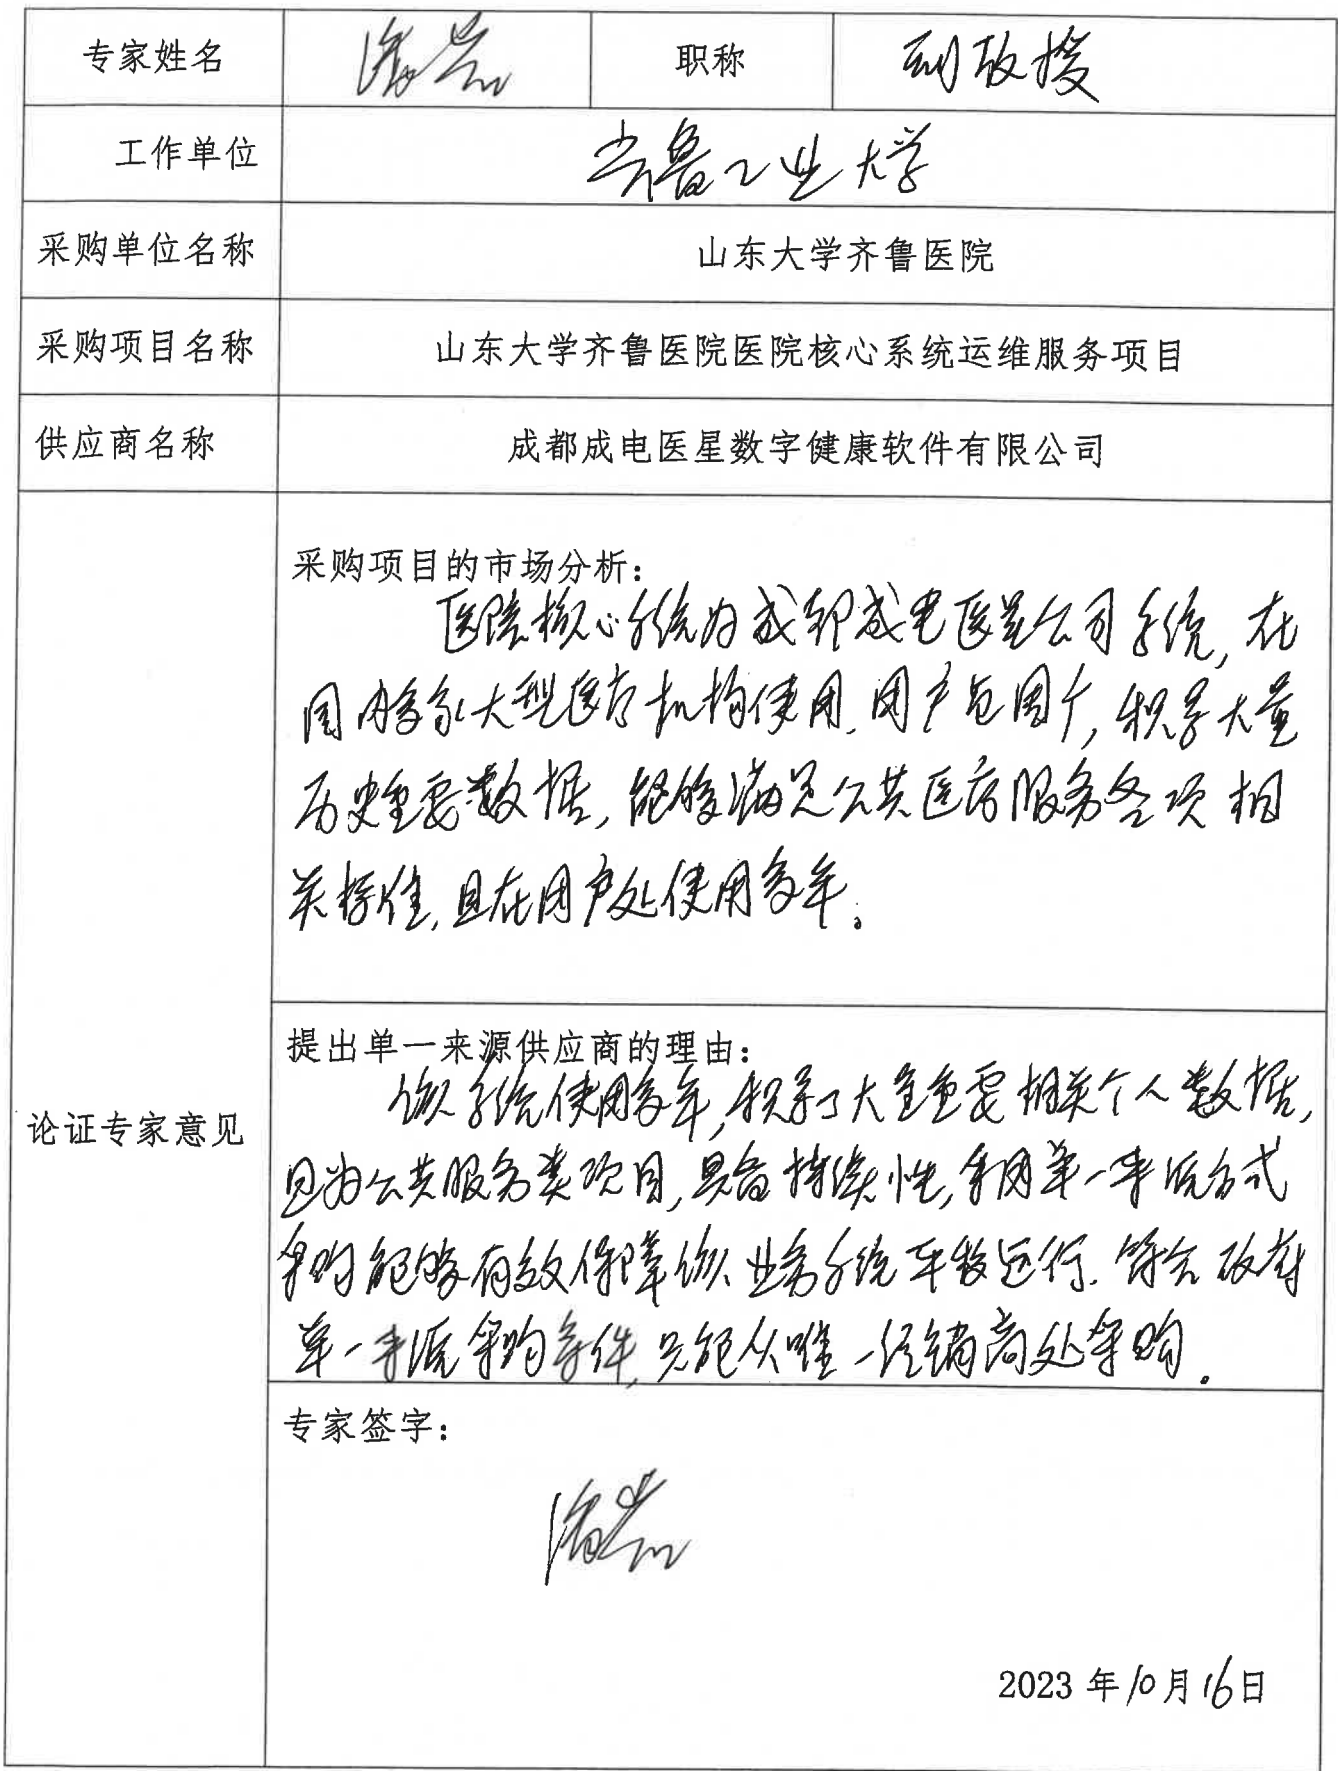 专家姓名 职称 副教授
工作单位 齐鲁工业大学
采购单位名称 山东大学齐鲁医院
采购项目名称 山东大学齐鲁医院医院核心系统运维服务项目
供应商名称 成都成电医星数字健康软件有限公司
论证专家意见
采购项目的市场分析：
医院核心系统为成都成电医星公司系统，在
国内多家大型医疗机构使用，用户范围广，积累大量
历史重要数据，能够满足公共医疗服务各项相
关标准，且在用户处使用多年。
提出单一来源供应商的理由：
该系统使用多年，积累了大量重要相关个人数据，
且为公共服务类项目，具备持续性，采用单一来源方式
采购能够有效保障该业务系统平稳运行．符合政府
单一来源采购条件，只能从唯一经销商处采购。
专家签字：
2023 年10月16日